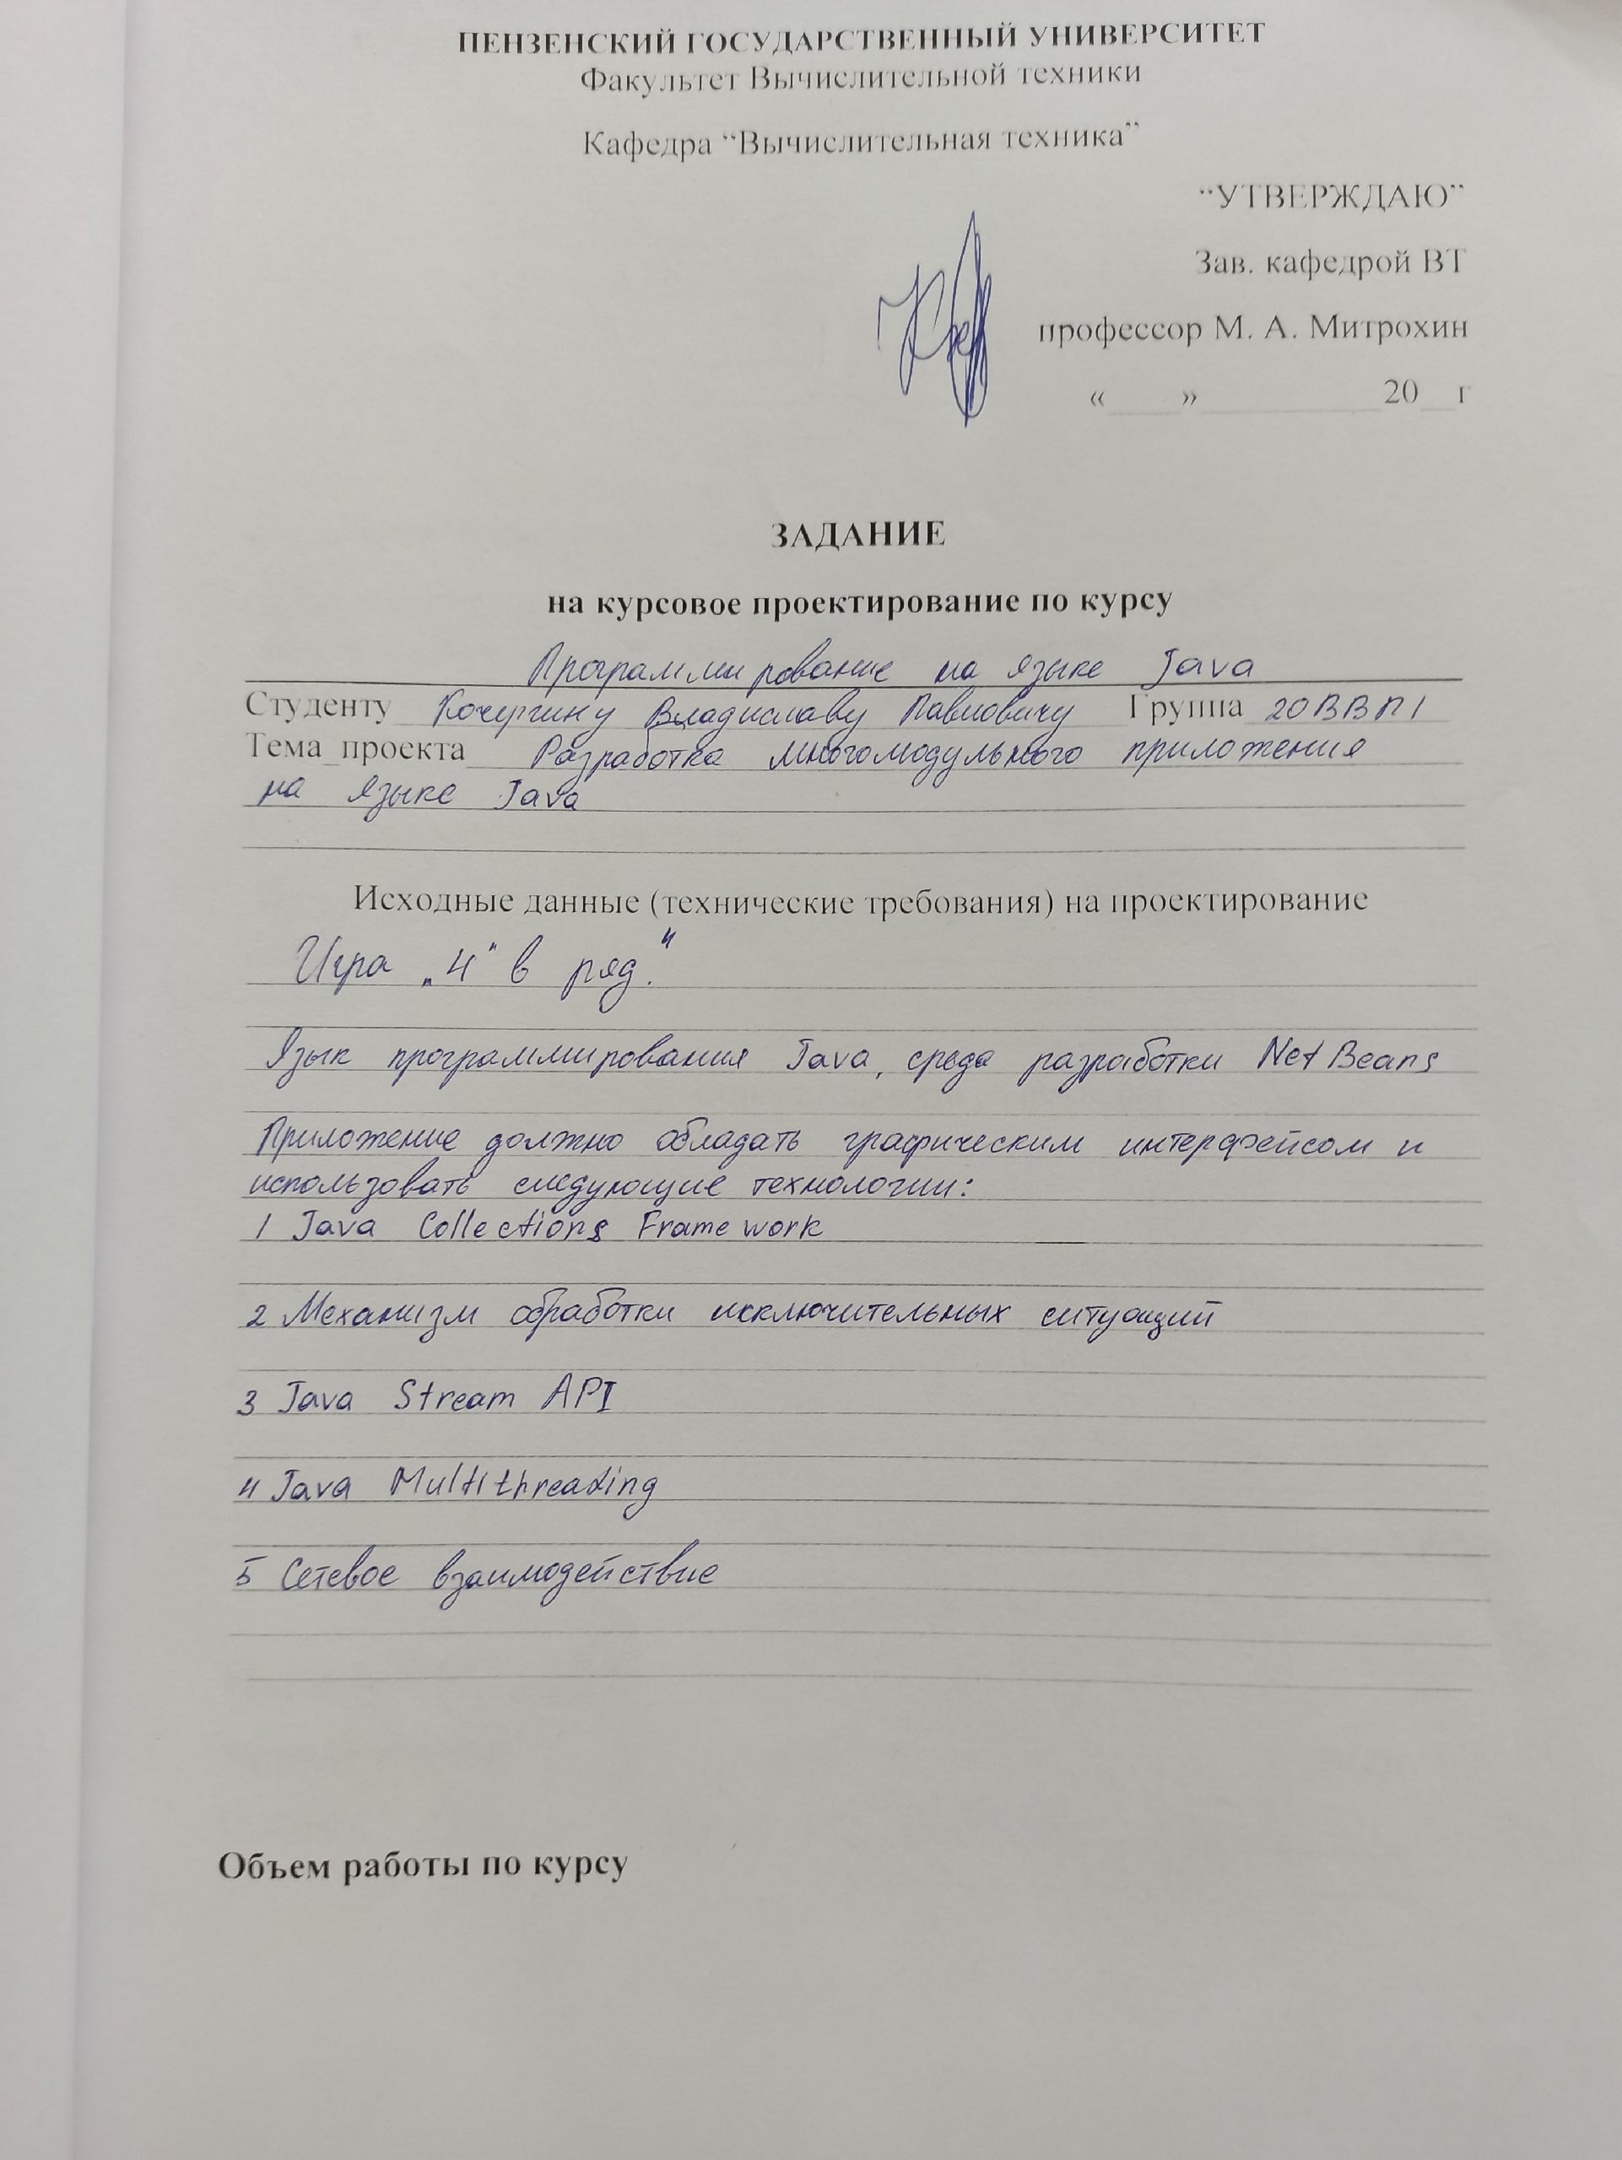 ПЕНЗЕНСКИЙ ГОСУДАРСТВЕННЫЙ УНИВЕРСИТЕТ
Факультет Вычислительной техники
Кафедра “Вычислительная техника”
“УТВЕРЖДАЮ”
Зав. кафедрой ВТ
профессор М. А. Митрохин
«____»__________20__г
ЗАДАНИЕ
на курсовое проектирование по курсу
Программирование на языке Java
Студенту Кочергину Владиславу Павловичу Группа 20ВВП1
Тема проекта Разработка многомодульного приложения
на языке Java
Исходные данные (технические требования) на проектирование
Игра „4" в ряд."
Язык программирования Java, среда разработки NetBeans
Приложение должно обладать графическим интерфейсом и
использовать следующие технологии:
1 Java Collections Framework
2 Механизм обработки исключительных ситуаций
3 Java Stream API
4 Java Multithreading
5 Сетевое взаимодействие
Объем работы по курсу